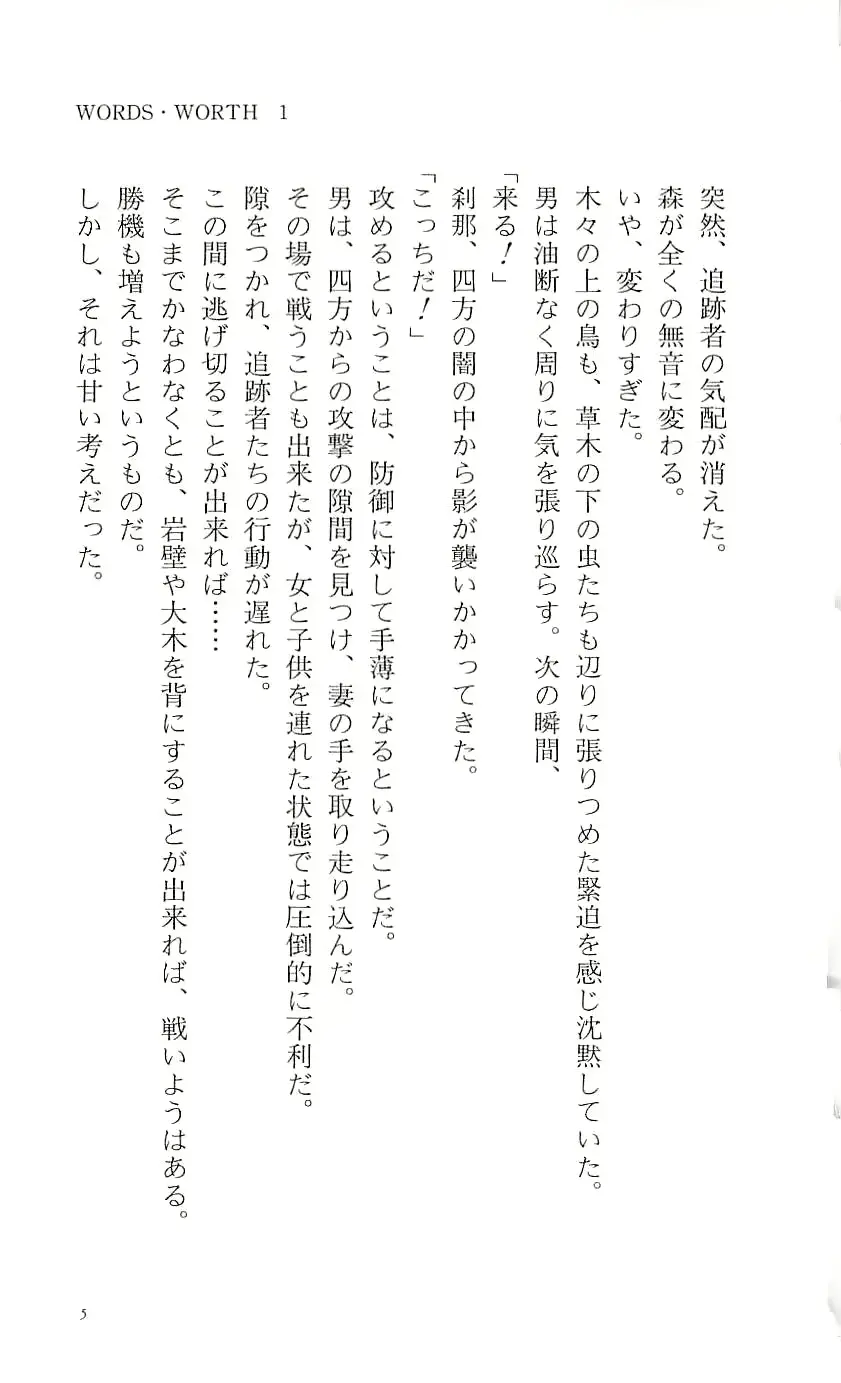 WORDS・WORTH 1
突然、追跡者の気配が消えた。
森が全くの無音に変わる。
いや、変わりすぎた。
木々の上の鳥も、草木の下の虫たちも辺りに張りつめた緊迫を感じ沈黙していた。
男は油断なく周りに気を張り巡らす。次の瞬間、
「来る！」
刹那、四方の闇の中から影が襲いかかってきた。
「こっちだ！」
攻めるということは、防御に対して手薄になるということだ。
男は、四方からの攻撃の隙間を見つけ、妻の手を取り走り込んだ。
その場で戦うことも出来たが、女と子供を連れた状態では圧倒的に不利だ。
隙をつかれ、追跡者たちの行動が遅れた。
この間に逃げ切ることが出来れば……
そこまでかなわなくとも、岩壁や大木を背にすることが出来れば、戦いようはある。
勝機も増えようというものだ。
しかし、それは甘い考えだった。
5